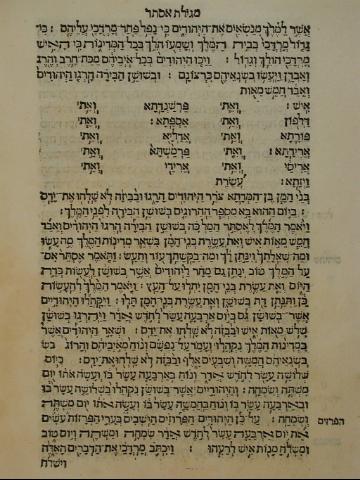 מגילת אסתר
אשר למלך מנשאים את־היהודים כי נפל פחד מרדכי עליהם : כי
גדול מרדכי בבית המלך ושמעו הולך בכל המדינות כי־האיש
מרדכי הולך וגדול : ויכו היהודים בכל איביהם מכת־חרב והרג
ואבדן ויעשו בשנאיהם כרצונם : ובשושן הבירה הרגו היהודים
ואבד חמש מאות
איש : ואת׀ פרשנדתא ואת׀
דלפון ואת׀ אספתא ואת׀
פורתא ואת׀ אדליא ואת׀
ארידתא ואת׀ פרמשתא ואת׀
אריסי ואת׀ ארידי ואת׀
ויזתא : עשרת
בני המן בן־המדתא צרר היהודים הרגו ובבזה לא שלחו את־ידם
: ביום ההוא בא מספר ההרוגים בשושן הבירה לפני המלך :
ויאמר המלך לאסתר המלכה בשושן הבירה הרגו היהודים ואבד
חמש מאות איש ואת עשרת בני־המן בשאר מדינות המלך מה עשו
ומה שאלתך וינתן לך ומה בקשתך עוד ותעש : ותאמר אסתר אם־
על־המלך טוב ינתן גם מחר ליהודים אשר בשושן לעשות כדת
היום ואת עשרת בני־המן יתלו על־העץ : ויאמר המלך להעשות
כן ותנתן דת בשושן ואת עשרת בני־המן תלו : ויקהלו היהודיים
אשר־בשושן גם ביום ארבעה עשר לחדש אדר ויהרגו בשושן
שלש מאות איש ובבזה לא שלחו את־ידם : ושאר היהודים אשר
במדינות המלך נקהלו ועמד על־נפשם ונוח מאיביהם והרוג
בשנאיהם חמשה ושבעים אלף ובבזה לא שלחו את־ידם : ביום
שלושה עשר לחדש אדר ונוח בארבעה עשר בו ועשה אתו יום
משתה ושמחה : והיהודיים אשר־בשושן נקהלו בשלושה עשר בו
ובארבעה עשר בו ונוח בחמשה עשר בו ועשה אתו יום משתה
ושמחה : על־כן היהודים הפרוזים הישבים בערי הפרזות עשים
הפרזים
את יום ארבעה עשר לחדש אדר שמחה ומשתה ויום טוב
ומשלח מנות איש לרעהו : ויכתב מרדכי את־הדברים האלה
וישלח